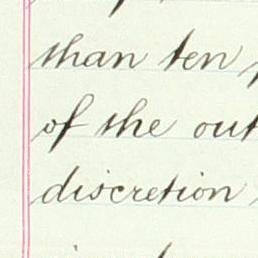 than ten
of the out
discretion